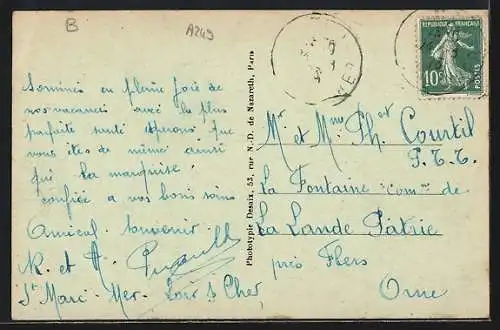 B
A249
Sommes en pleine joie de
nos vacances avec la plus
parfaite santé espérons que
vous êtes de même ainsi
que la marquise
confiée a vos bons soins
Amical Souvenir
R. et A.
St Marc. Mer. Loir & Cher
Phototypie Desaix, 53, rue N.-D. de Nazareth, Paris
REPUBLIQUE FRANÇAISE
10c
POSTES
Mr et Mme Ph Courtil
P.T.T.
La Fontaine comne de
La Lande Patrie
près Flers
Orne